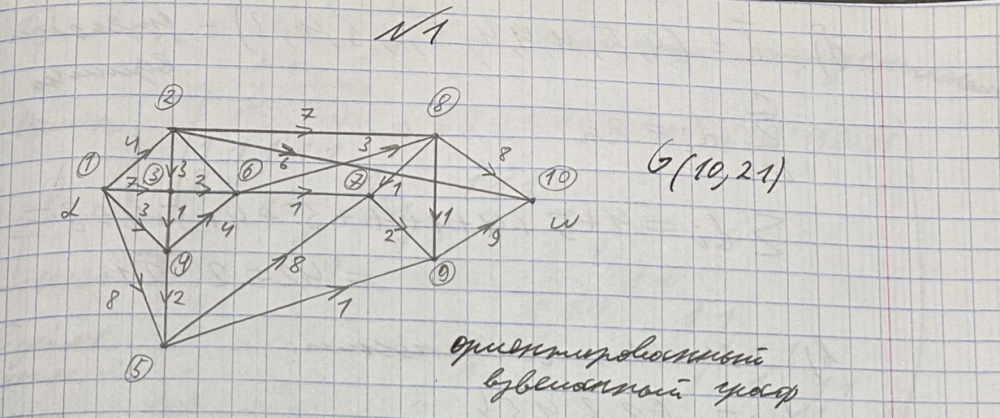 №1
2
8
7
4
3
8
1
3
6
6
3
7
1
10
7
2
1
G(10,21)
α
ω
3
1
4
2
9
4
9
8
2
8
1
5
ориентированный
взвешанный граф